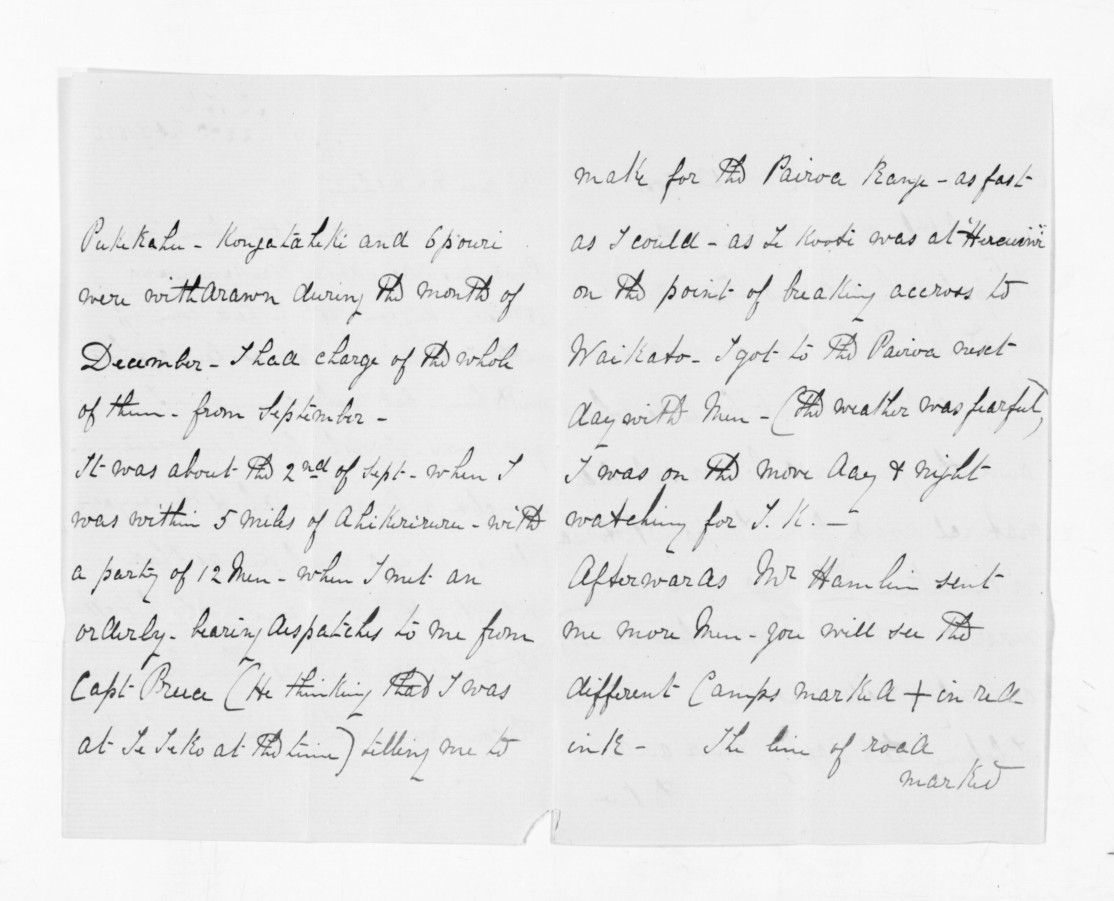 Pukekahu - Kongatahiki and Opouri
were withdrawn during the month of
December - I had charge of the whole
of them - from September -
It was about the 2nd of Sept - when I
was within 5 miles of Ahikereru - with
a party of 12 Men - when I met an
orderly - bearing despatches to me from
Capt Preece (He thinking that I was
at Te Teko at the time) telling me to
make for the Pairoa Range - as fast
as I could - as Te Kooti was at
on the point of breaking accross to
Waikato - I got to the Pairoa next
day with Men - (the weather was fearful)
I was on the move day & night
watching for T. K. -
Afterwards Mr Hamlin sent
me more Men - you will see the
different Camps marked + in red
ink - The line of road
marked